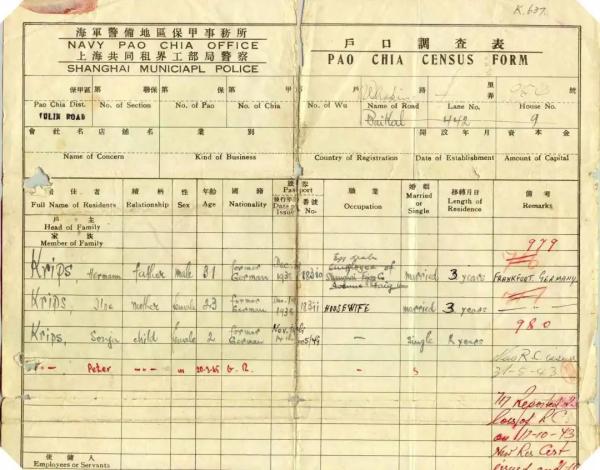 K. 637.
海軍警備地區保甲事務所
NAVY PAO CHIA OFFICE
上海共同租界工部局警察
SHANGHAI MUNICIAPL POLICE
戶口調查表
PAO CHIA CENSUS FORM
保甲區 第 聯保 第 保 第 甲 第 戶 路 里弄 號
Pao Chia Dist. No. of Section No. of Pao No. of Chia No. of Wu Name of Road Lane No. House No.
YULIN ROAD Baikal 442 9
會社名店舖名 業別 開設年月 資本金
Name of Concern Kind of Business Country of Registration Date of Establishment Amount of Capital
居住者 續柄 性 年齡 國籍 職業 婚姻 移轉月日 備考
Full Name of Residents Relationship Sex Age Nationality Passport Date of Issue No. Occupation Married or Single Length of Residence Remarks
戶主
Head of Family
家族
Member of Family
979
Krips, Hermann father male 31 former German 1938 Employee of married 3 years FRANKFURT, GERMANY
Krips, Ilse mother female 23 former German 1938 HOUSEWIFE married 3 years
980
Krips, Sonja child female 2 former German Nov. – single 2 years
31-5-43
" – Peter -"- m G. R. – s
Reported
loss of R.C.
on 17-10-43
New Res Cert
使傭人
Employees or Servants